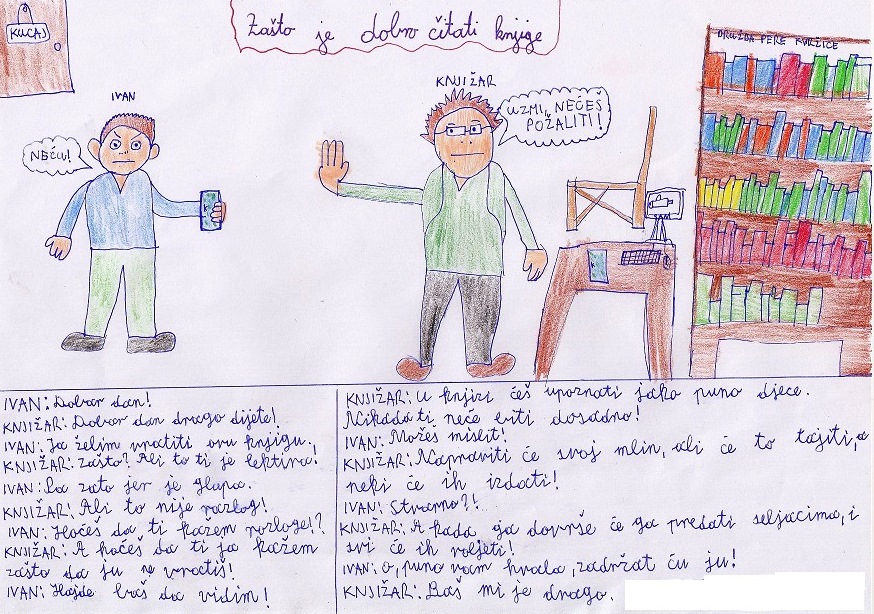 KUCAJ
Zašto je dobro čitati knjige
DRUŽBA PERE KVRŽICE
IVAN
KNJIŽAR
NEĆU!
UZMI, NEĆEŠ
POŽALITI!
IVAN: Dobar dan!
KNJIŽAR: Dobar dan drago dijete!
IVAN: Ja želim vratiti ovu knjigu.
KNJIŽAR: Zašto? Ali to ti je lektira!
IVAN: Pa zato jer je glupa.
KNJIŽAR: Ali to nije razlog!
IVAN: Hoćeš da ti kažem razloge!?
KNJIŽAR: A hoćeš da ti ja kažem
zašto da ju ne vratiš!
IVAN: Hajde baš da vidim!
KNJIŽAR: U knjizi ćeš upoznati jako puno djece.
Nikada ti neće biti dosadno!
IVAN: Možeš mislit!
KNJIŽAR: Napraviti će svoj mlin, ali će to tajiti, a
neki će ih izdati!
IVAN: Stvarno?!
KNJIŽAR: A kada ga dovrše će ga predati seljacima, i
svi će ih voljeti!
IVAN: O, puno vam hvala, zadržat ću ju!
KNJIŽAR: Baš mi je drago.